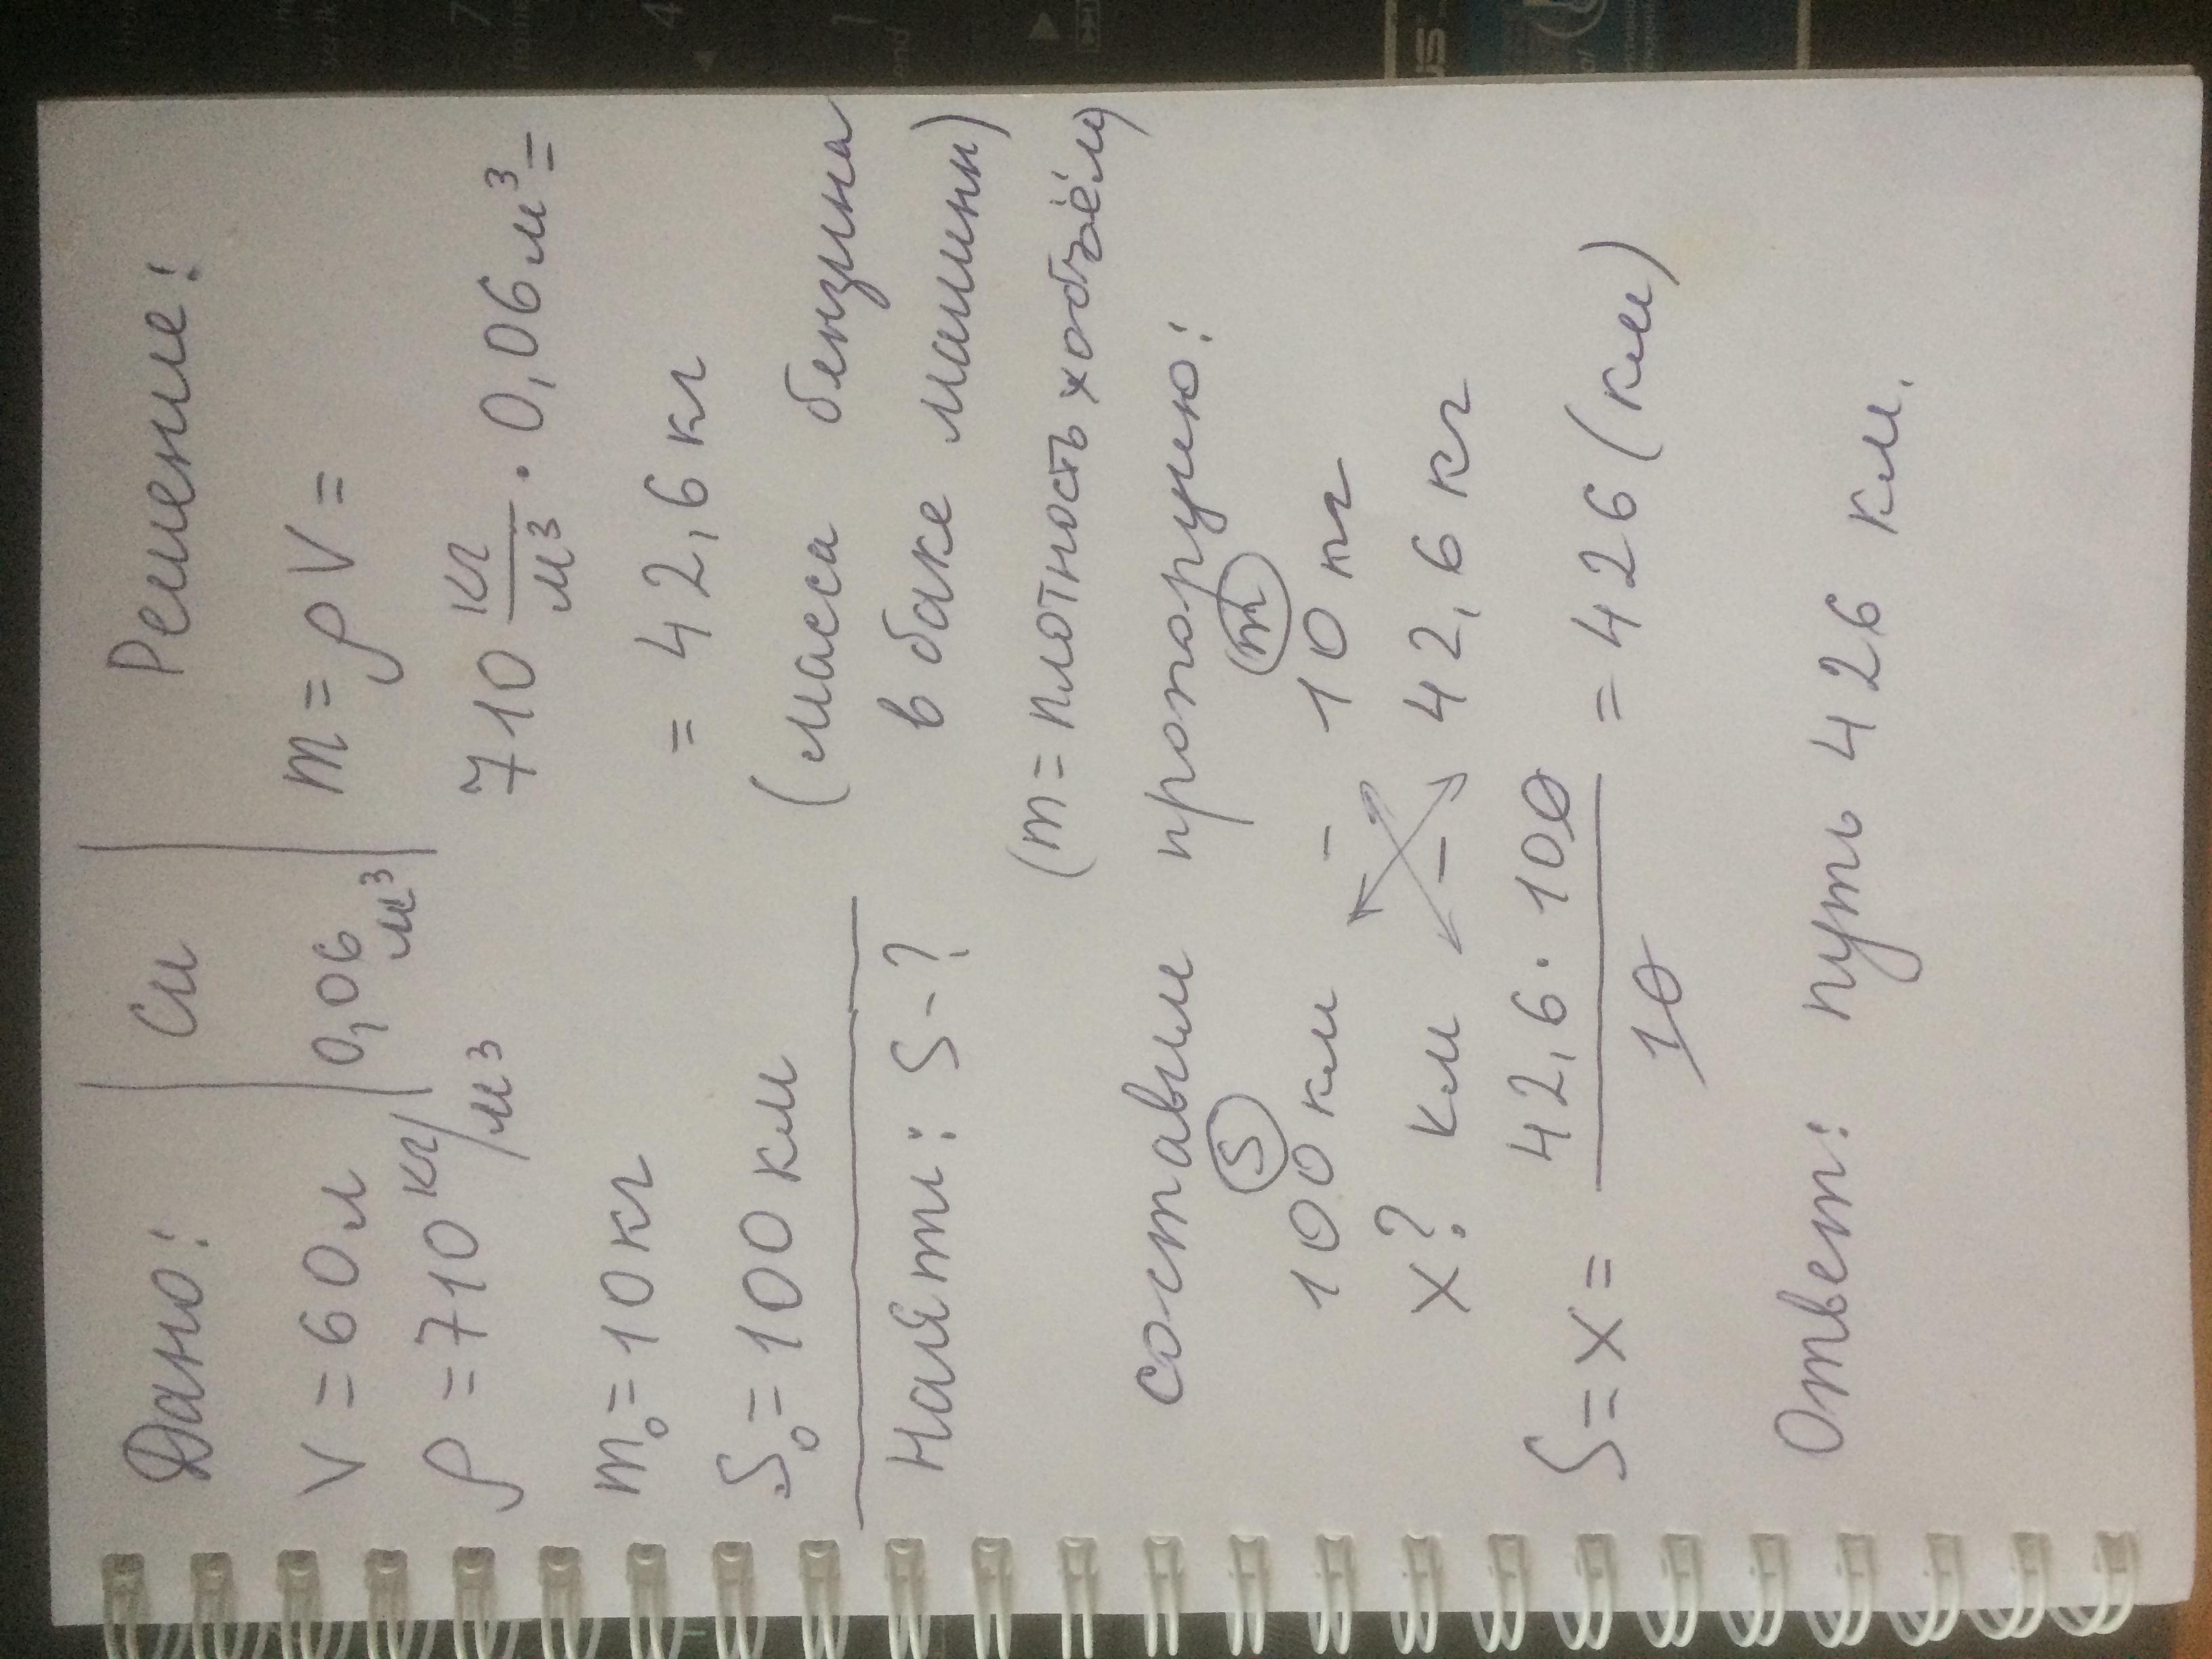 Дано: Си Решение:
V = 60л 0,06 м³ m = ρV =
ρ = 710 кг/м³ 710 кг/м³ · 0,06 м³ =
m₀ = 10 кг = 42,6 кг
S₀ = 100 км (масса бензина
Найти: S - ? в баке машины)
(m = плотность х объём)
составим пропорцию:
S m
100 км - 10 кг
x? км - 42,6 кг
S = x = 42,6 · 100 / 10 = 426 (км)
Ответ: путь 426 км.